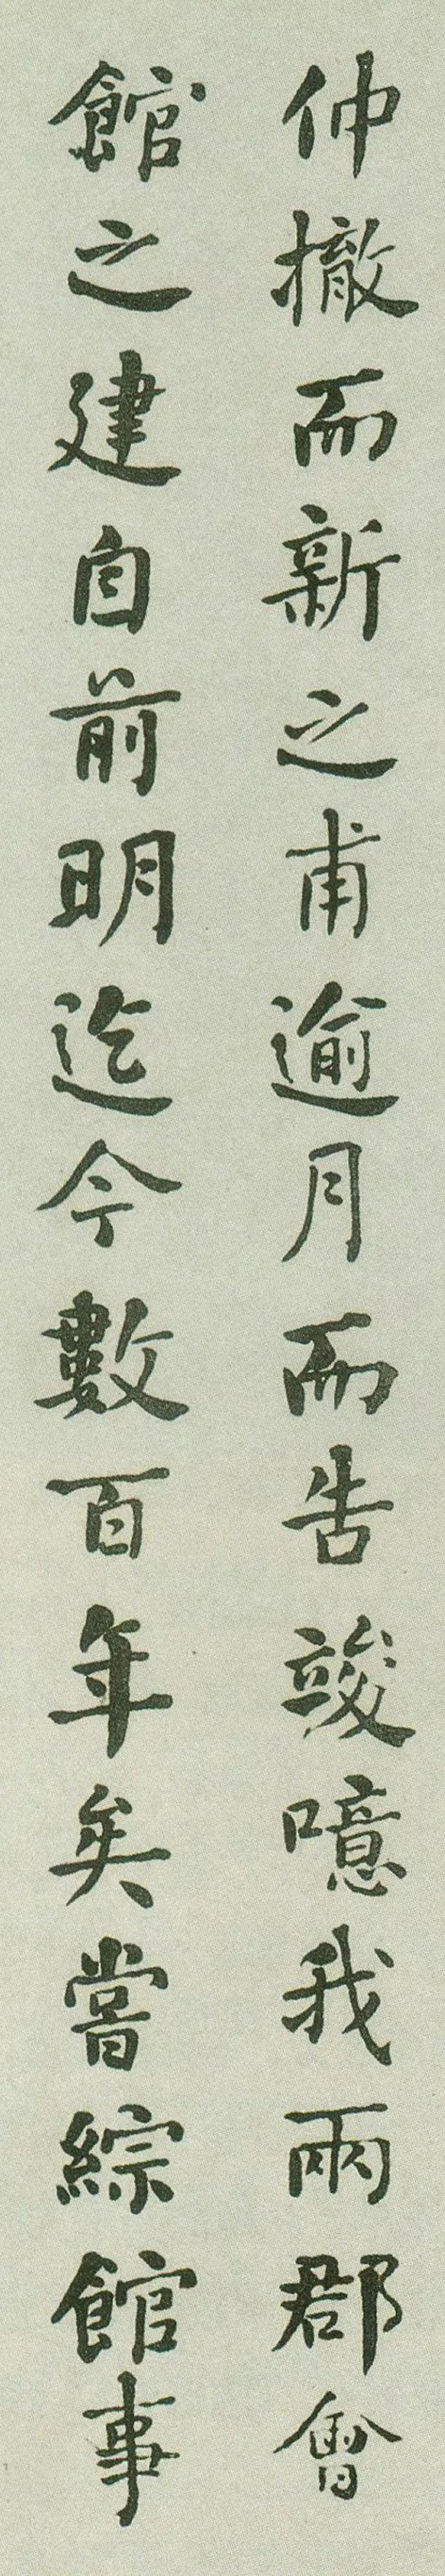 仲撤而新之甫逾月而告竣噫我兩郡會
館之建自前明迄今數百年矣嘗綜館事